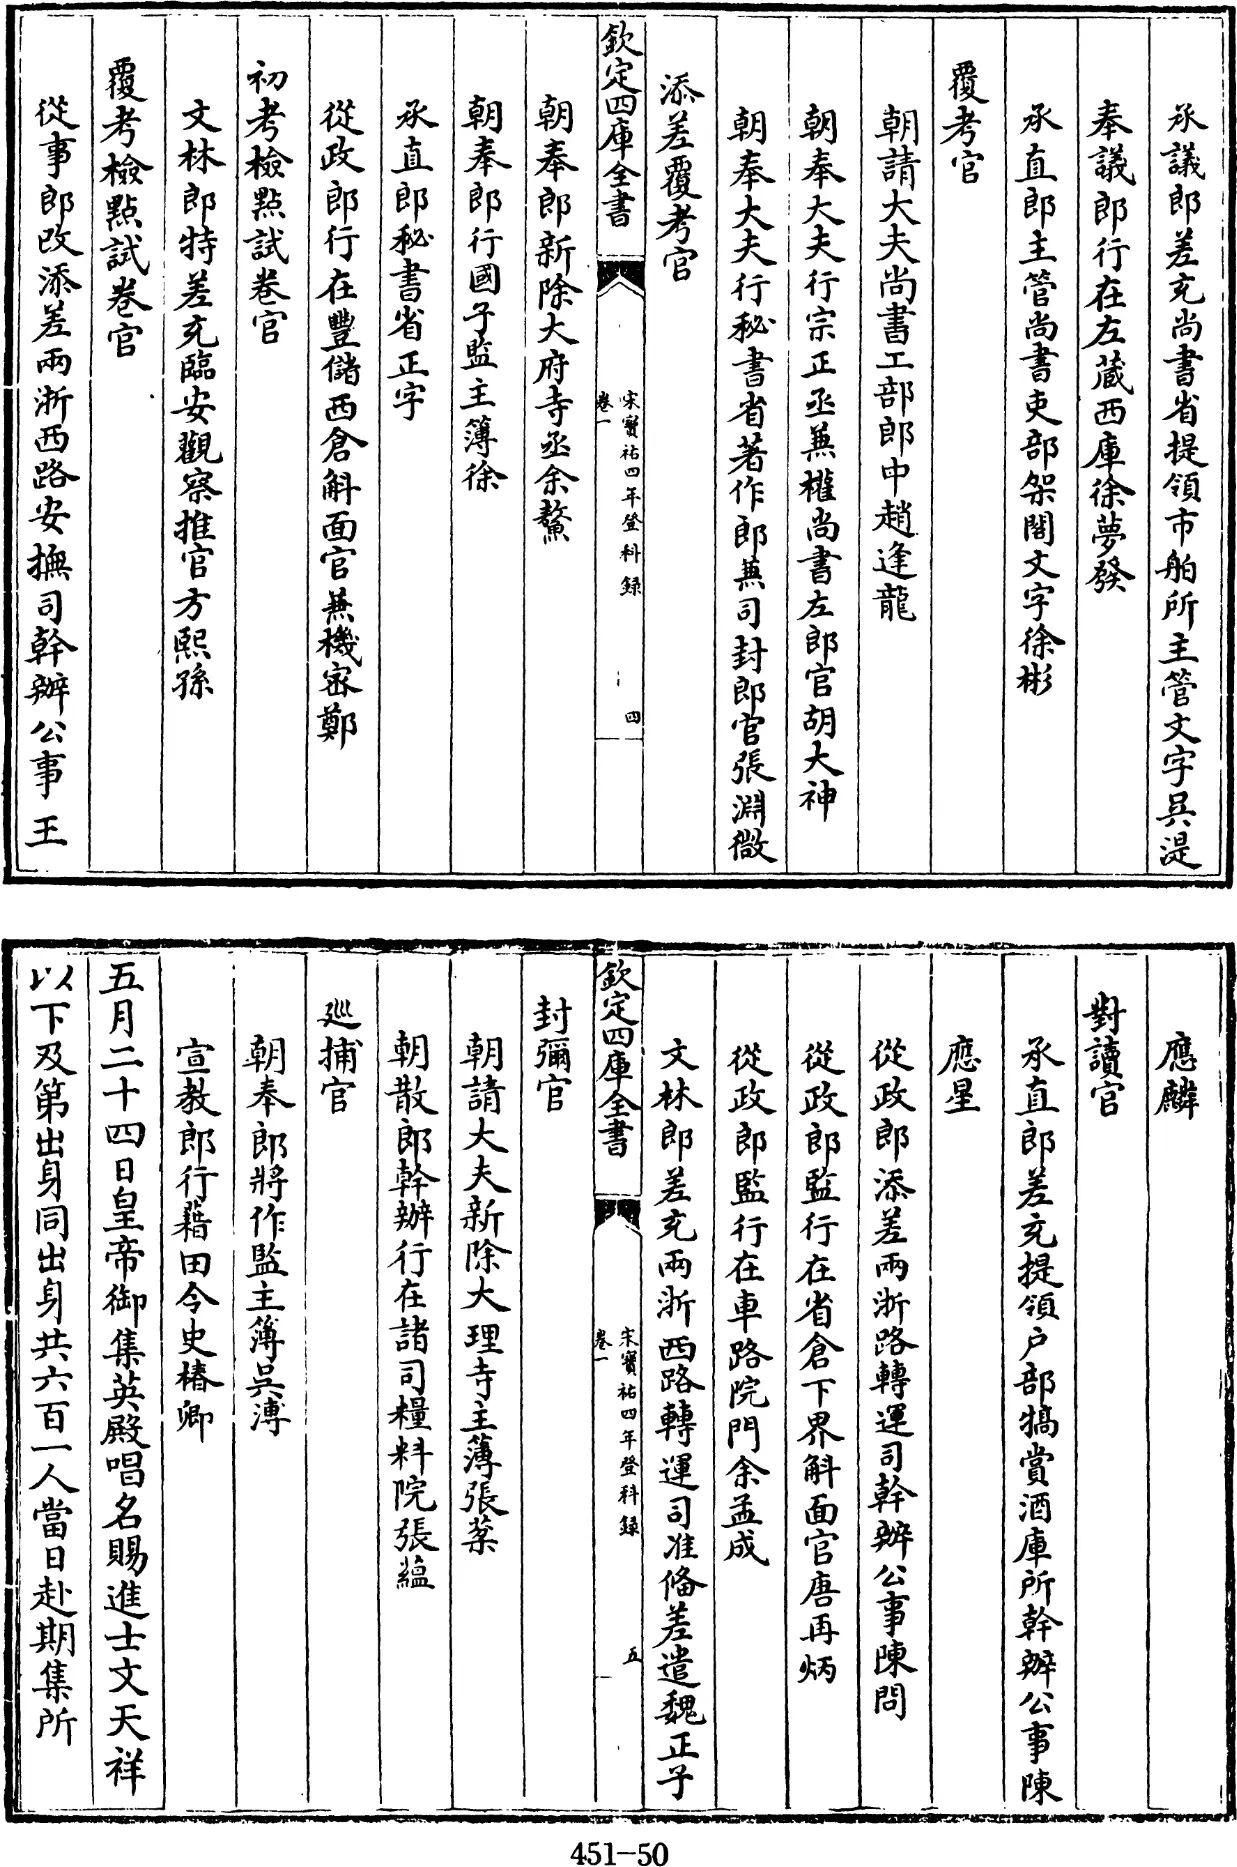 承議郎差充尚書省提領市舶所主管文字吳湜
奉議郎行在左藏西庫徐夢發
承直郎主管尚書吏部架閣文字徐彬
覆考官
朝請大夫尚書工部郎中趙逢龍
朝奉大夫行宗正丞兼權尚書左郎官胡大神
朝奉大夫行秘書省著作郎兼司封郎官張淵微
添差覆考官
欽定四庫全書
宋寶祐四年登科錄
卷一
四
朝奉郎新除大府寺丞余鰲
朝奉郎行國子監主簿徐
承直郎秘書省正字
從政郎行在豐儲西倉斛面官兼機密鄭
初考檢點試卷官
文林郎特差充臨安觀察推官方熙孫
覆考檢點試卷官
從事郎改添差兩浙西路安撫司幹辦公事王
應麟
對讀官
承直郎差充提領戶部犒賞酒庫所幹辦公事陳
應星
從政郎添差兩浙路轉運司幹辦公事陳問
從政郎監行在省倉下界斛面官唐再炳
從政郎監行在車路院門余孟成
文林郎差充兩浙西路轉運司准俻差遣魏正子
欽定四庫全書
宋寶祐四年登科錄
卷一
五
封彌官
朝請大夫新除大理寺主薄張葈
朝散郎幹辦行在諸司糧料院張縕
巡捕官
朝奉郎將作監主簿吳溥
宣教郎行藉田令史椿卿
五月二十四日皇帝御集英殿唱名賜進士文天祥
以下及第出身同出身共六百一人當日赴期集所
451-50